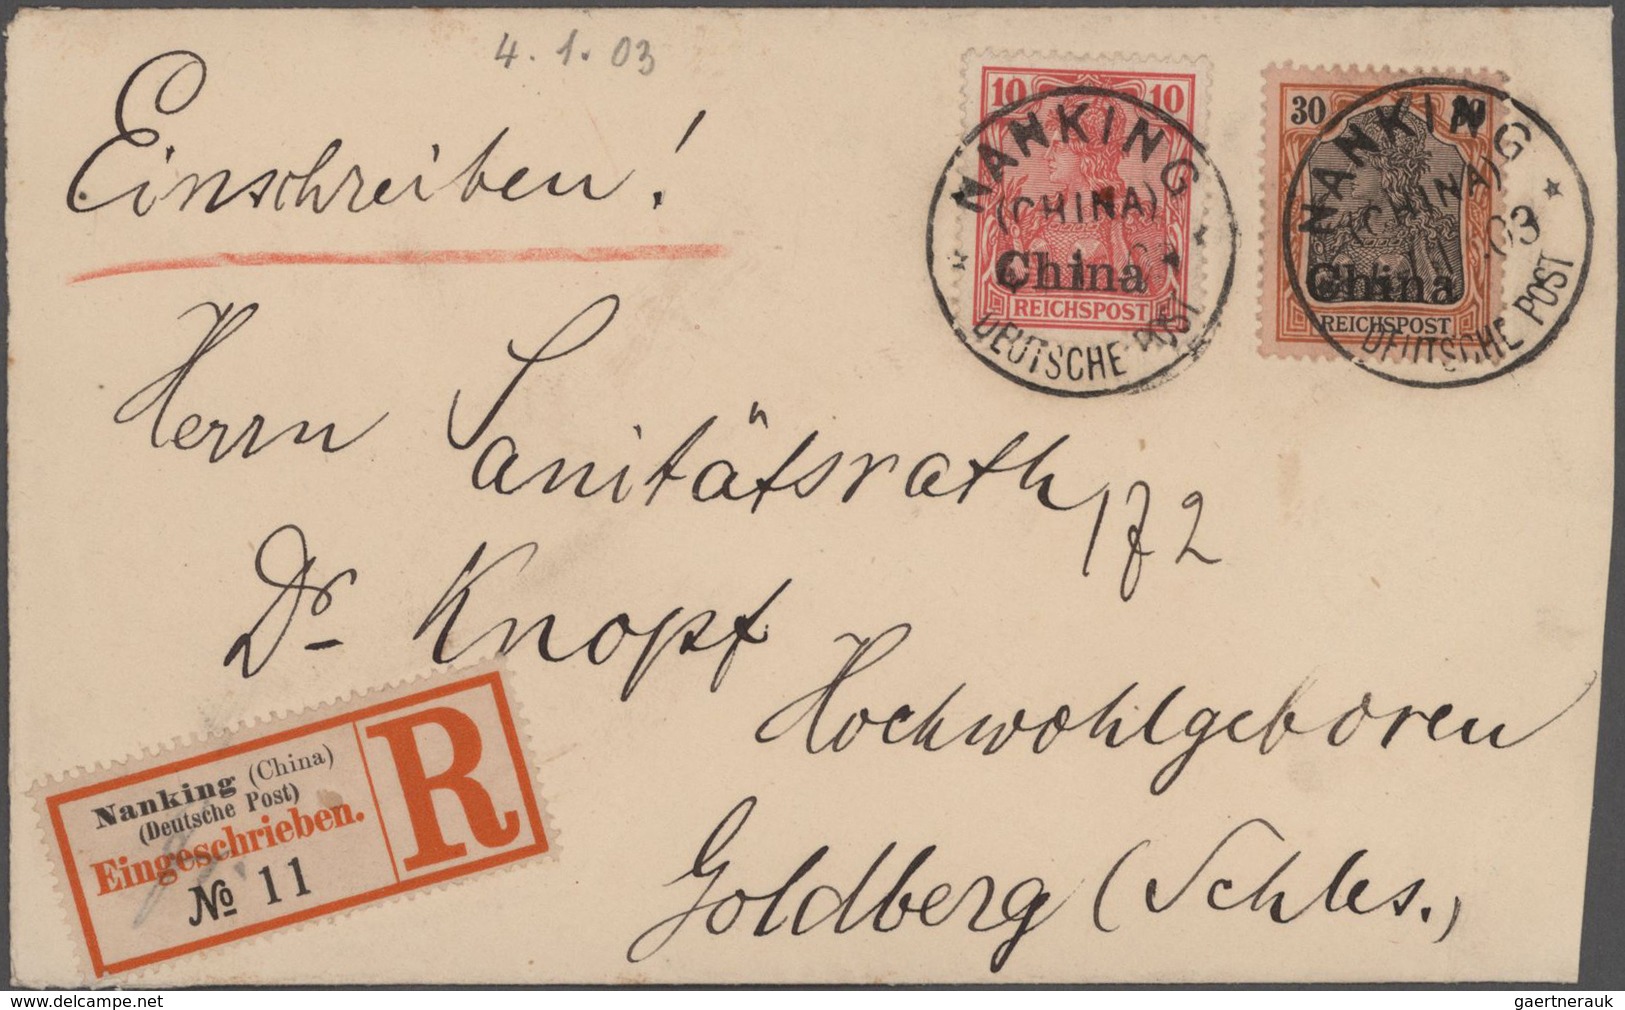 4. 1. 03
Einschreiben!
10 10
China
REICHSPOST
NANKING
(CHINA)
DEUTSCHE POST
30 30
China
REICHSPOST
NANKING
(CHINA)
03
DEUTSCHE POST
Herrn Sanitätsrath
172
Dr Knopf
Hochwohlgeboren
Goldberg (Schles.)
Nanking (China)
(Deutsche Post)
Eingeschrieben.
№ 11
R
gaertnerauk // delcampe.net